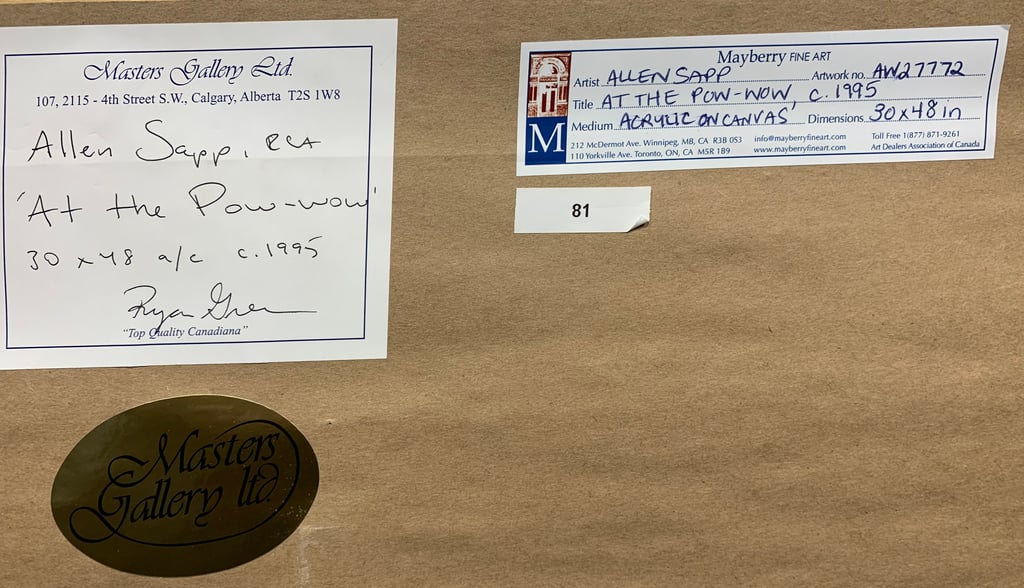 Masters Gallery Ltd.
107, 2115 - 4th Street S.W., Calgary, Alberta T2S 1W8
Allen Sapp, RCA
'At the Pow-wow'
30 x 48 a/c c.1995
Ryan Green
"Top Quality Canadiana"
Masters
Gallery ltd.
Mayberry FINE ART
Artist ALLEN SAPP Artwork no. AW27772
Title AT THE POW-WOW, c. 1995
Medium ACRYLIC ON CANVAS Dimensions 30 x 48 in
M
212 McDermot Ave. Winnipeg, MB, CA R3B 0S3 info@mayberryfineart.com Toll Free 1(877) 871-9261
110 Yorkville Ave. Toronto, ON, CA M5R 1B9 www.mayberryfineart.com Art Dealers Association of Canada
81